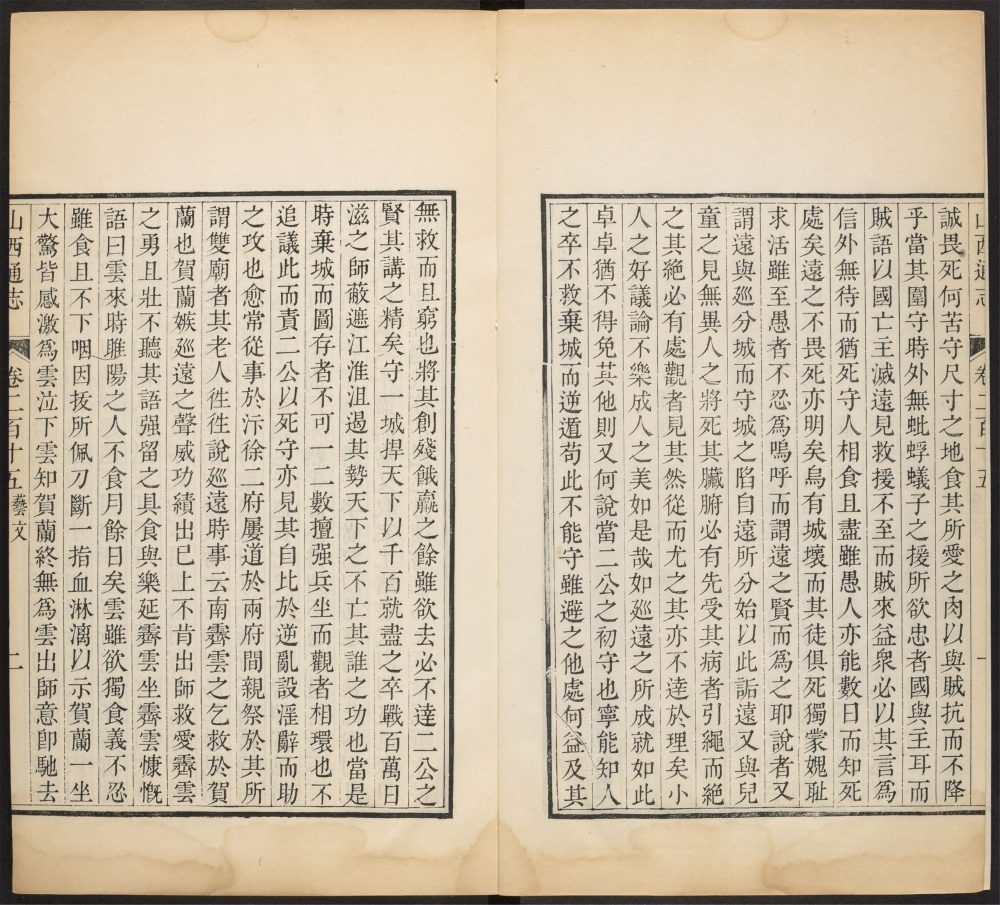 山西通志 卷二百一十五 一
誠畏死何苦守尺寸之地食其所愛之肉以與賊抗而不降
乎當其圍守時外無蚍蜉蟻子之援所欲忠者國與主耳而
賊語以國亡主滅遠見救援不至而賊來益衆必以其言為
信外無待而猶死守人相食且盡雖愚人亦能數日而知死
處矣遠之不畏死亦明矣烏有城壞而其徒俱死獨蒙媿耻
求活雖至愚者不忍為嗚呼而謂遠之賢而為之耶說者又
謂遠與廵分城而守城之陷自遠所分始以此詬遠又與兒
童之見無異人之將死其臟腑必有先受其病者引繩而絕
之其絕必有處觀者見其然從而尤之其亦不達於理矣小
人之好議論不樂成人之美如是哉如廵遠之所成就如此
卓卓猶不得免其他則又何說當二公之初守也寧能知人
之卒不救棄城而逆遁苟此不能守雖避之他處何益及其
無救而且窮也將其創殘餓羸之餘雖欲去必不達二公之
賢其講之精矣守一城捍天下以千百就盡之卒戰百萬日
滋之師蔽遮江淮沮遏其勢天下之不亡其誰之功也當是
時棄城而圖存者不可一二數擅强兵坐而觀者相環也不
追議此而責二公以死守亦見其自比於逆亂設淫辭而助
之攻也愈常從事於汴徐二府屢道於兩府間親祭於其所
謂雙廟者其老人徃徃說廵遠時事云南霽雲之乞救於賀
蘭也賀蘭嫉廵遠之聲威功績出巳上不肯出師救愛霽雲
之勇且壯不聽其語强留之具食與樂延霽雲坐霽雲慷慨
語曰雲來時睢陽之人不食月餘日矣雲雖欲獨食義不忍
雖食且不下咽因拔所佩刀斷一指血淋漓以示賀蘭一坐
大驚皆感激為雲泣下雲知賀蘭終無為雲出師意卽馳去
山西通志 卷二百十五 藝文 二